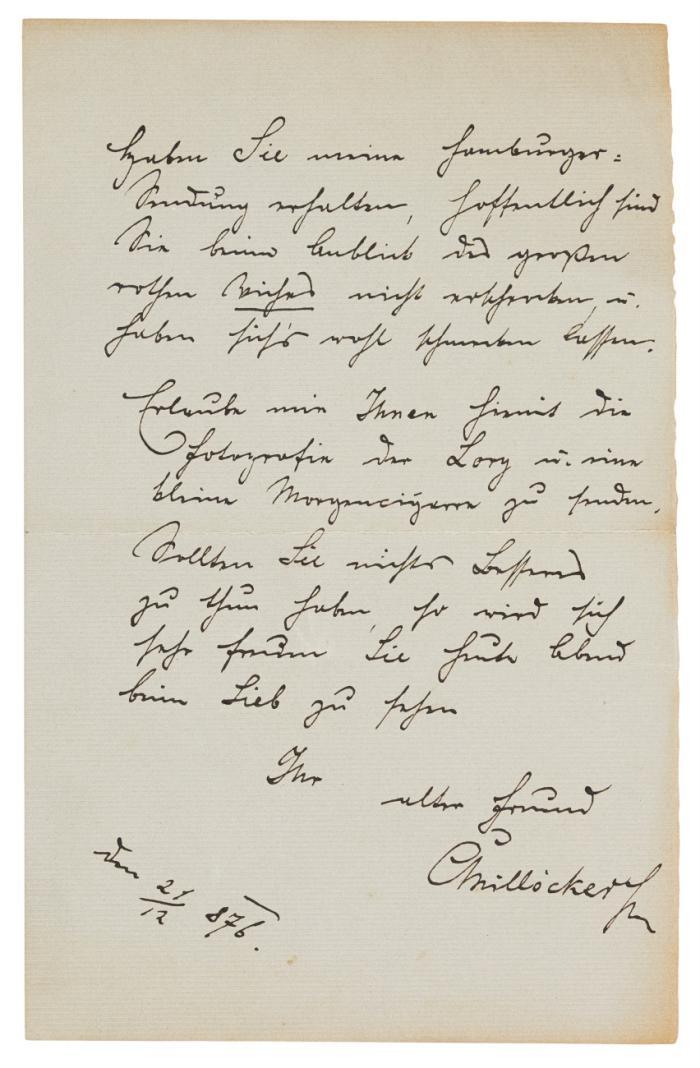 Haben Sie meine Hamburger=
Sendung erhalten, hoffentlich sind
Sie beim Anblick des großen
rothen Viches nicht erschrocken, u.
haben sich's wohl schmecken lassen.
Erlaube mir Ihnen hiemit die
Fotografie der Lory u. eine
kleine Morgencigarre zu senden.
Sollten Sie nichts Besseres
zu thun haben, so wird sich
sehr freuen Sie heute Abend
beim Lieb zu sehen
Ihr
alter Freund
CMillöcker
den 21/12 876.